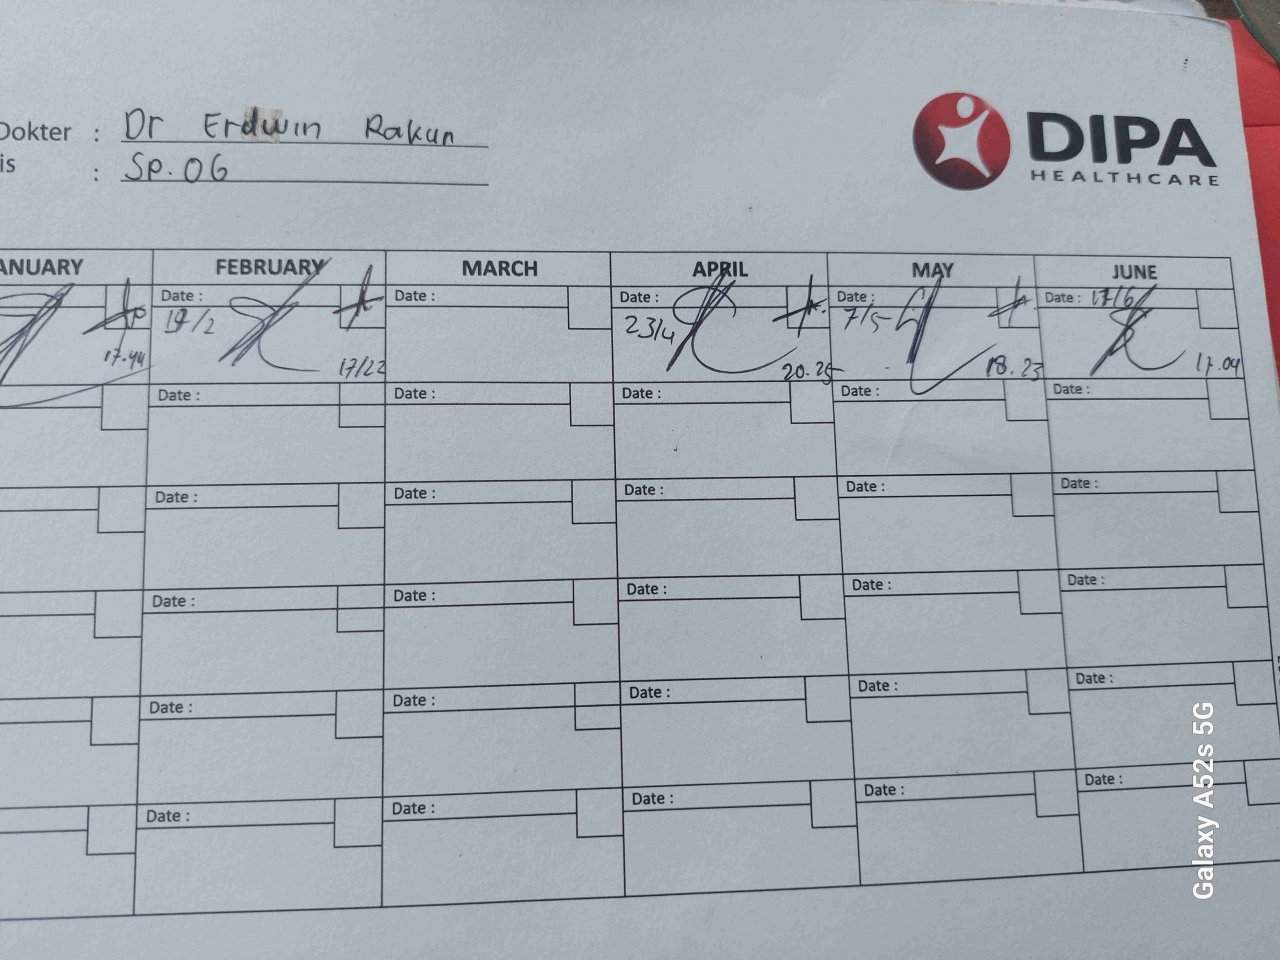 Dokter : Dr Erdwin Rakun
is : Sp.OG
DIPA
HEALTHCARE
ANUARY FEBRUARY MARCH APRIL MAY JUNE
Date : Date : Date : Date : Date : 17/6
19/2 23/4 7/5
17.44 17/22 20.25 18.23 17.04
Date : Date : Date : Date : Date :
Date : Date : Date : Date : Date :
Date : Date : Date : Date : Date :
Date : Date : Date : Date : Date :
Date : Date : Date : Date : Date :
Galaxy A52s 5G